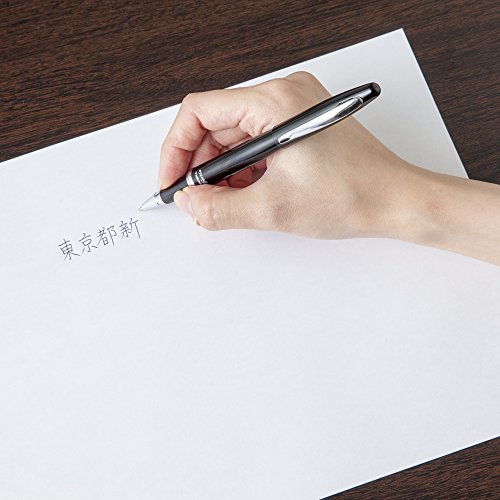 東京都新